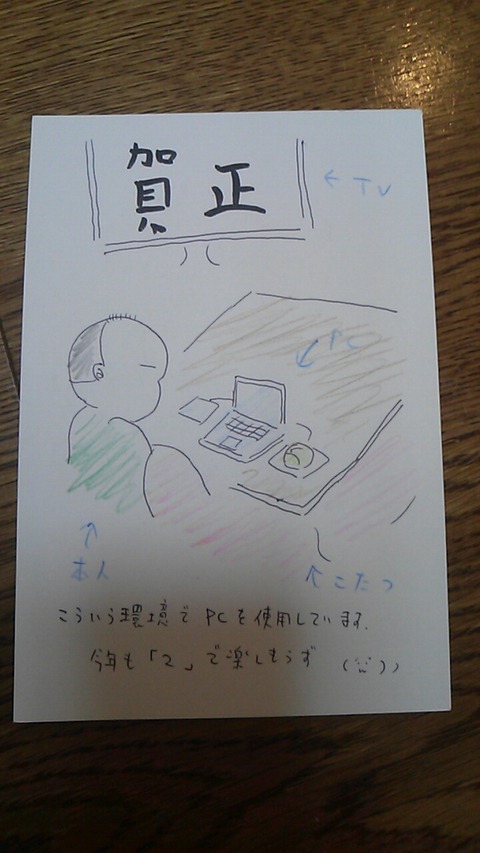 賀正
← TV
↙ PC
↑
本人
↖ こたつ
こういう環境でPCを使用しています.
今年も「2」で楽しもうず